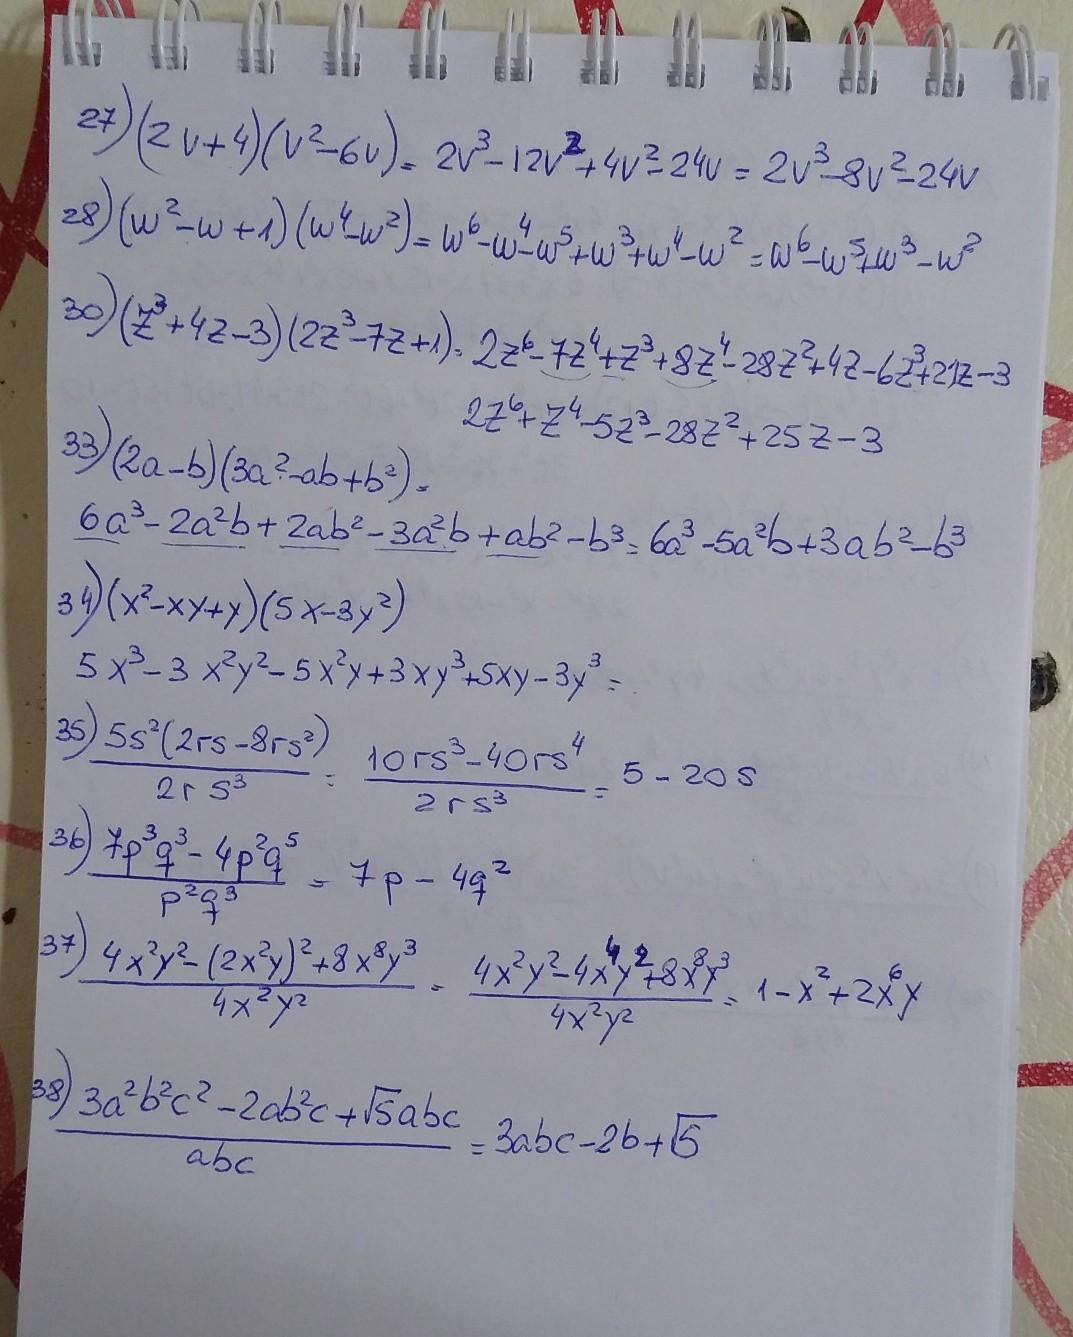 27) (2v+4)(v²-6v) = 2v³-12v²+4v²-24v = 2v³-8v²-24v
28) (w²-w+1)(w⁴-w²) = w⁶-w⁴-w⁵+w³+w⁴-w² = w⁶-w⁵+w³-w²
30) (z³+4z-3)(2z³-7z+1) = 2z⁶-7z⁴+z³+8z⁴-28z²+4z-6z³+21z-3
2z⁶+z⁴-5z³-28z²+25z-3
33) (2a-b)(3a²-ab+b²) =
6a³-2a²b+2ab²-3a²b+ab²-b³ = 6a³-5a²b+3ab²-b³
34) (x²-xy+y)(5x-3y²)
5x³-3x²y²-5x²y+3xy³+5xy-3y³ =
35) 5s²(2rs-8rs²)/2rs³ = 10rs³-40rs⁴/2rs³ = 5-20s
36) 7p³q³-4p²q⁵/p²q³ = 7p-4q²
37) 4x²y²-(2x²y)²+8x⁸y³/4x²y² = 4x²y²-4x⁴y²+8x⁸y³/4x²y² = 1-x²+2x⁶y
38) 3a²b²c²-2ab²c+√5abc/abc = 3abc-2b+√5